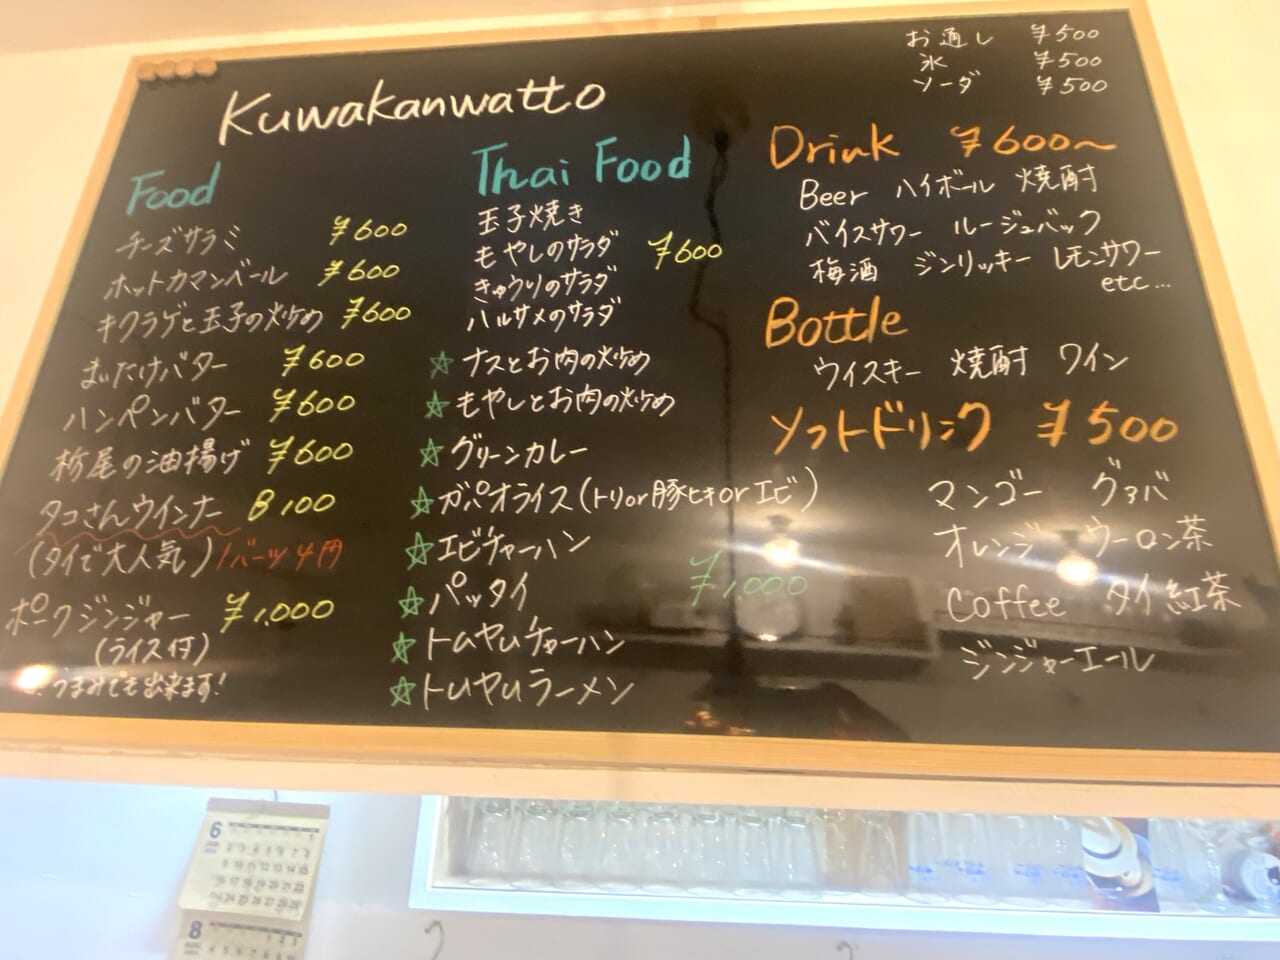 お通し ¥500
氷 ¥500
ソーダ ¥500
Kuwakanwatto
Food
チーズサラミ ¥600
ホットカマンベール ¥600
キクラゲと玉子の炒め ¥600
まいたけバター ¥600
ハンペンバター ¥600
栃尾の油揚げ ¥600
タコさんウインナー B100
(タイで大人気) 1バーツ4円
ポークジンジャー ¥1,000
(ライス付)
つまみでも出来ます!
Thai Food
玉子焼き
もやしのサラダ ¥600
きゅうりのサラダ
ハルサメのサラダ
☆ナスとお肉の炒め
☆もやしとお肉の炒め
☆グリーンカレー
☆ガパオライス(トリor豚ヒキorエビ)
☆エビチャーハン
☆パッタイ ¥1,000
☆トムヤムチャーハン
☆トムヤムラーメン
Drink ¥600〜
Beer ハイボール 焼酎
バイスサワー ルージュバック
梅酒 ジンリッキー レモンサワー
etc...
Bottle
ウイスキー 焼酎 ワイン
ソフトドリンク ¥500
マンゴー グァバ
オレンジ ウーロン茶
Coffee タイ紅茶
ジンジャーエール
6
8